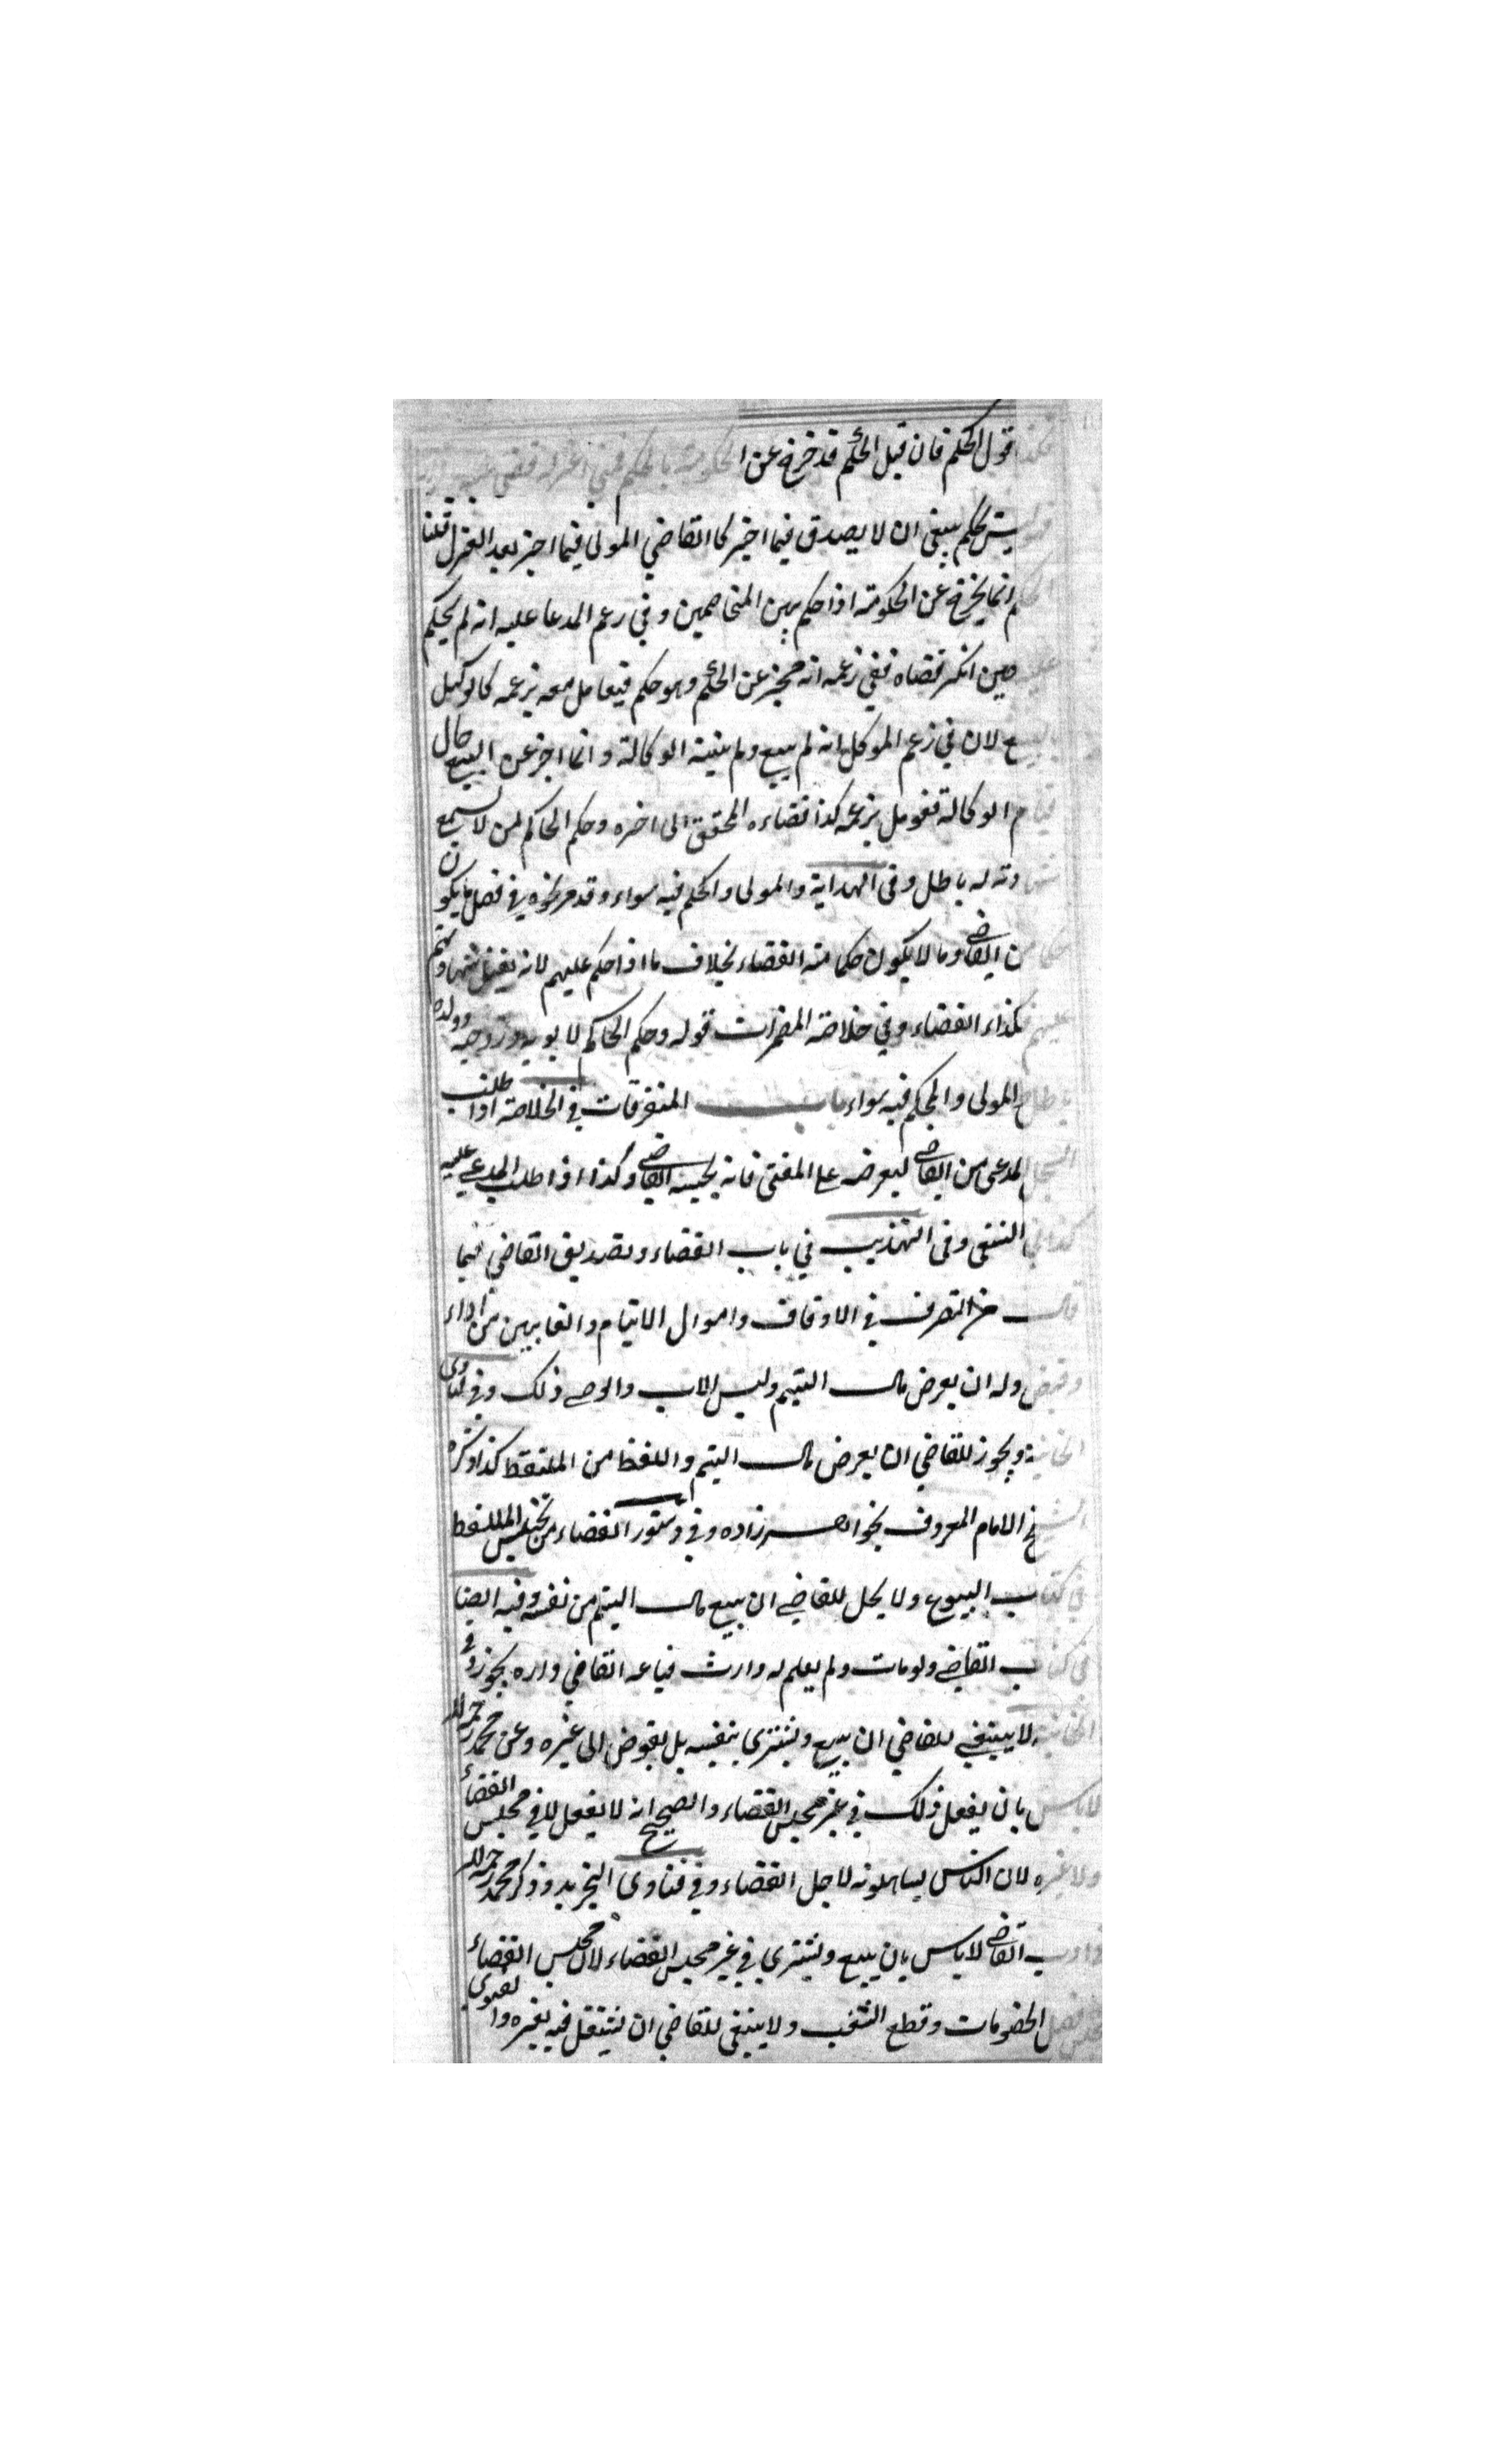 قول الحكم فان قيل الحكم قد خرج عن الحكومة بالحكم
بحكم ينبغى ان لا يصدق فيما اخبر كما القاضي المولى فيما اخبر بعد العزل قلنا
انما يخرج عن الحكومة اذا حكم بين المتخاصمين وفي زعم المدعا عليه انه لم يحكم
حين انكر قضاه ففي زعمه انه مخبر عن الحكم وهو حكم فيعامل معه بزعمه كالوكيل
لان في زعم الموكل انه لم يبيع ولم الوكالة وانما اخبر عن البيع حال
قيام الوكالة فعومل بزعمه كذا قضاءه المحقق الى اخره وحكم الحاكم لمن لا يسمع
شهادته له باطل وفى الهداية والمولى والحكم فيه سواء وقد مر نحوه في فصل ما يكون
حكما من القاضي وما لا يكون حكما منه القضاء بخلاف ما اذا حكم عليهم لانه يقبل شهادتهم
عليهم فكذاء القضاء وفي خلاصة المضمرات قوله وحكم الحاكم لابويه وزوجه وولده
باطل المولى والمحكم فيه سواء باب المتفرقات في الخلاصة اذا طلب
السجل المدعى من القاضي ليعرضه على المفتى فانه يجيبه القاضي وكذا اذا طلب المدعى عليه
كذا في النسفى وفى التهذيب في باب القضاء وتصديق القاضي فيما
قال من التصرف في الاوقاف واموال الايتام والغايبين من اداء
وقبض وله ان يعرض مال اليتيم وليس للاب والوصي ذلك وفي فتاوى
الخانية ويجوز للقاضي ان يعرض مال اليتيم واللفظ من الملتقط كذا ذكره
الشيخ الامام المعروف بخواهر زاده وفي دستور القضاء من تجنيس الملتقط
في كتاب البيوع ولا يحل للقاضي ان يبيع مال اليتيم من نفسه وفيه ايضا
في كتاب القاضي ولو مات ولم يعلم له وارث فباعه القاضي داره يجوز وفي
الخانية لا ينبغي للقاضي ان يبيع ويشترى بنفسه بل يفوض الى غيره وعن محمد رحمه الله
لا باس بان يفعل ذلك في غير مجلس القضاء والصحيح انه لا يفعل لا في مجلس القضاء
ولا غيره لان الناس يساهلونه لاجل القضاء وفي فتاوى التجريد وذكر محمد رحمه الله
في ادب القاضي لا باس بان يبيع ويشترى في غير مجلس القضاء لان مجلس القضاء
مجلس فصل الخصومات وقطع الشغب ولا ينبغى للقاضي ان يشتغل فيه بغيره